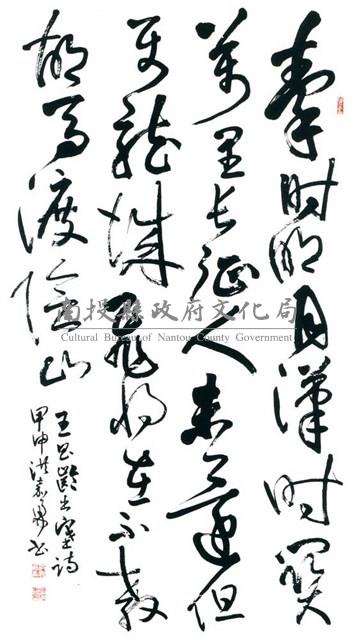 秦時明月漢時關
萬里長征人未還但
使龍城飛將在不教
胡馬渡陰山
王昌齡出塞詩
甲申洪嘉書
南投縣政府文化局
Cultural Bureau of Nantou County Government